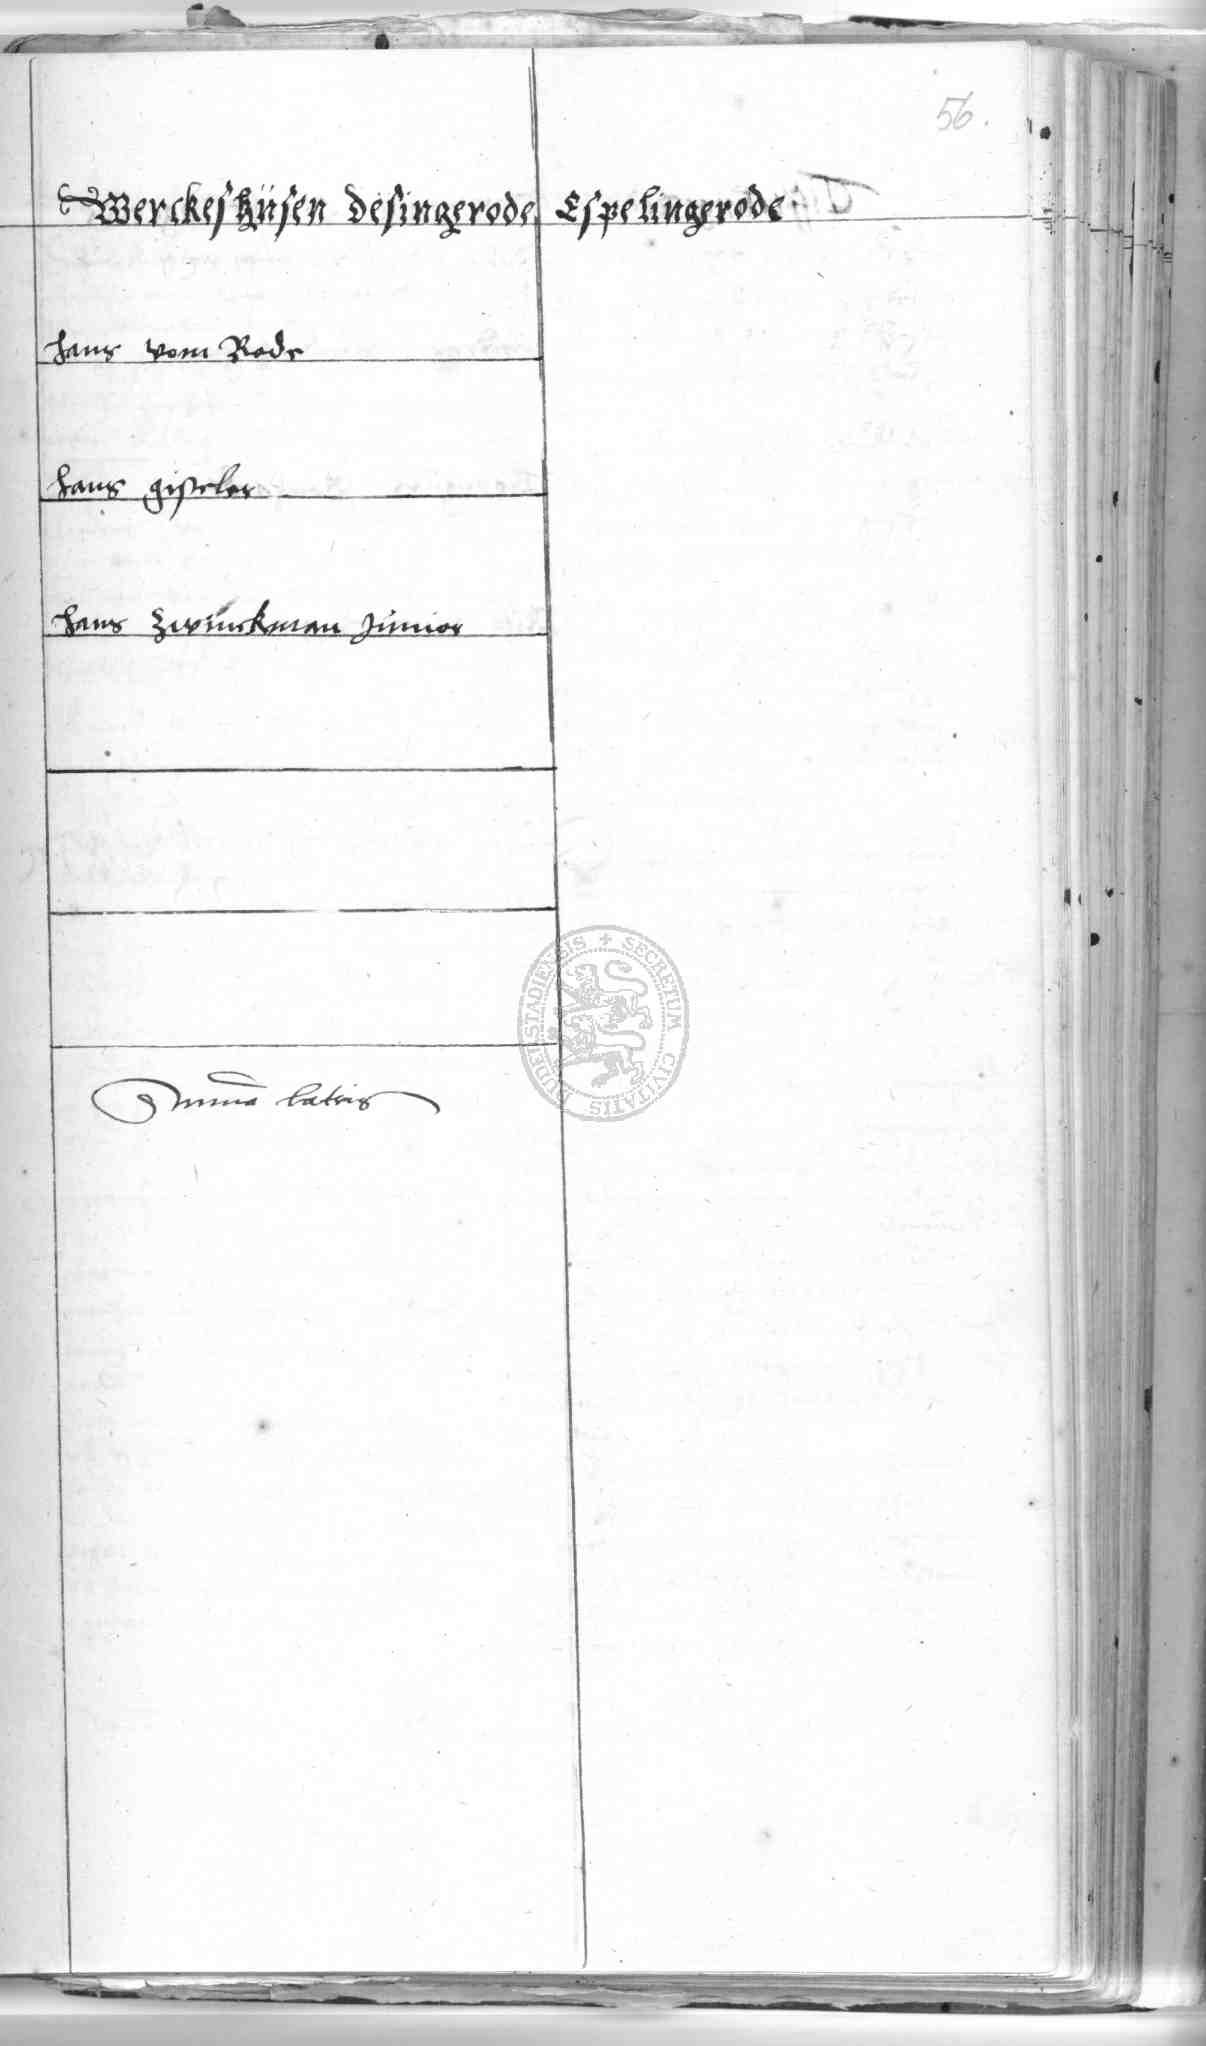 56.
Werckeshüsen desingerode Espelingerode
hans vom Rode
hans gisseler
hans Zwinckman Junior
Summa lateris
SECRETUM CIVITATIS DUDERSTADIENSIS